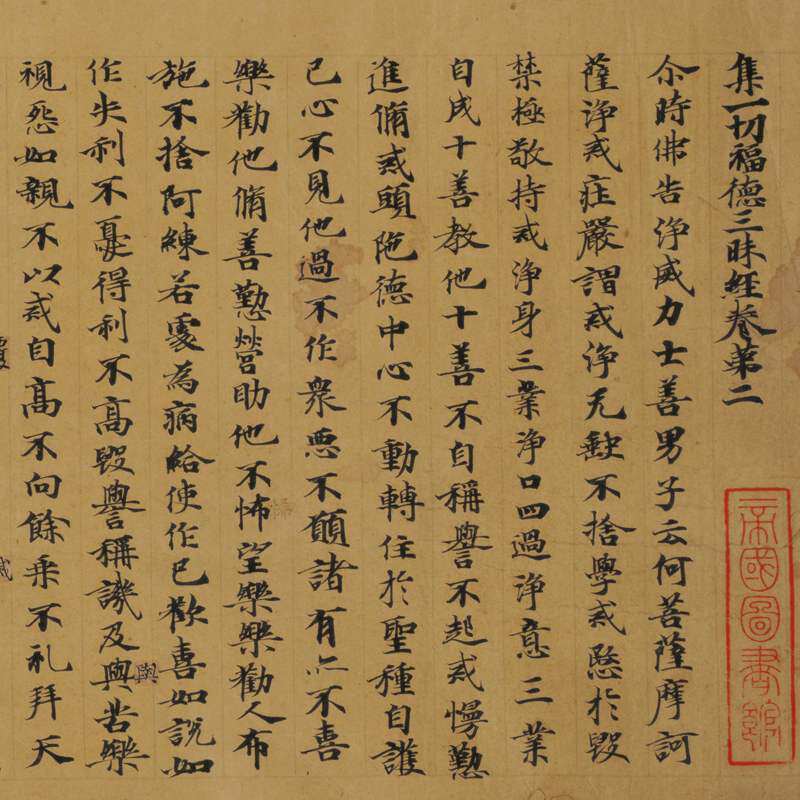 集一切福德三昧經卷第二
尒時佛告淨威力士善男子云何菩薩摩訶
薩淨戒庄嚴謂戒淨无缺不捨學戒慜於毀
禁極敬持戒淨身三業淨口四過淨意三業
自成十善教他十善不自稱譽不起戒慢懃
進脩戒頭陁德中心不動轉住於聖種自護
己心不見他過不作衆惡不願諸有亦不喜
樂勸他脩善懃營助他不悕望樂樂勸人布
施不捨阿練若處為病給使作已歡喜如說如
作失利不憂得利不高毀譽稱譏及與苦樂
與
視怨如親不以戒自高不向餘乘不礼拜天
帝國圖書館